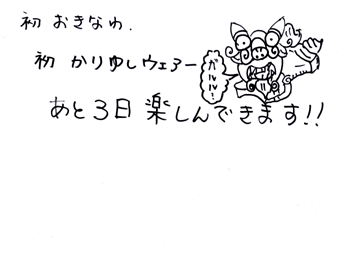 初 おきなわ.
初 かりゆしウェアー
ガルルル!
あと3日楽しんできます!!